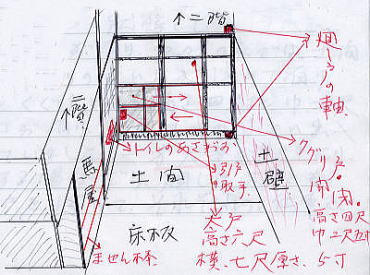 ↑二階
廻しの軸
↑横
馬屋
土間
土壁
床板
ません棒
トイレのあさがお
引戸
取手
大戸
高さ六尺
横、七尺厚さ、5寸
クグリ戸
開閉。
高さ四尺
巾二尺